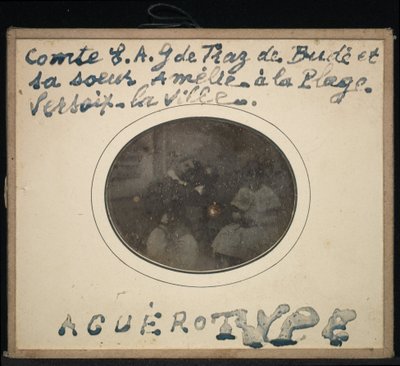 Comte E. A. G de Traz de Budé et
sa soeur Amélie à la Plage.
Versoix-la Ville.
AGUÈROTYPE